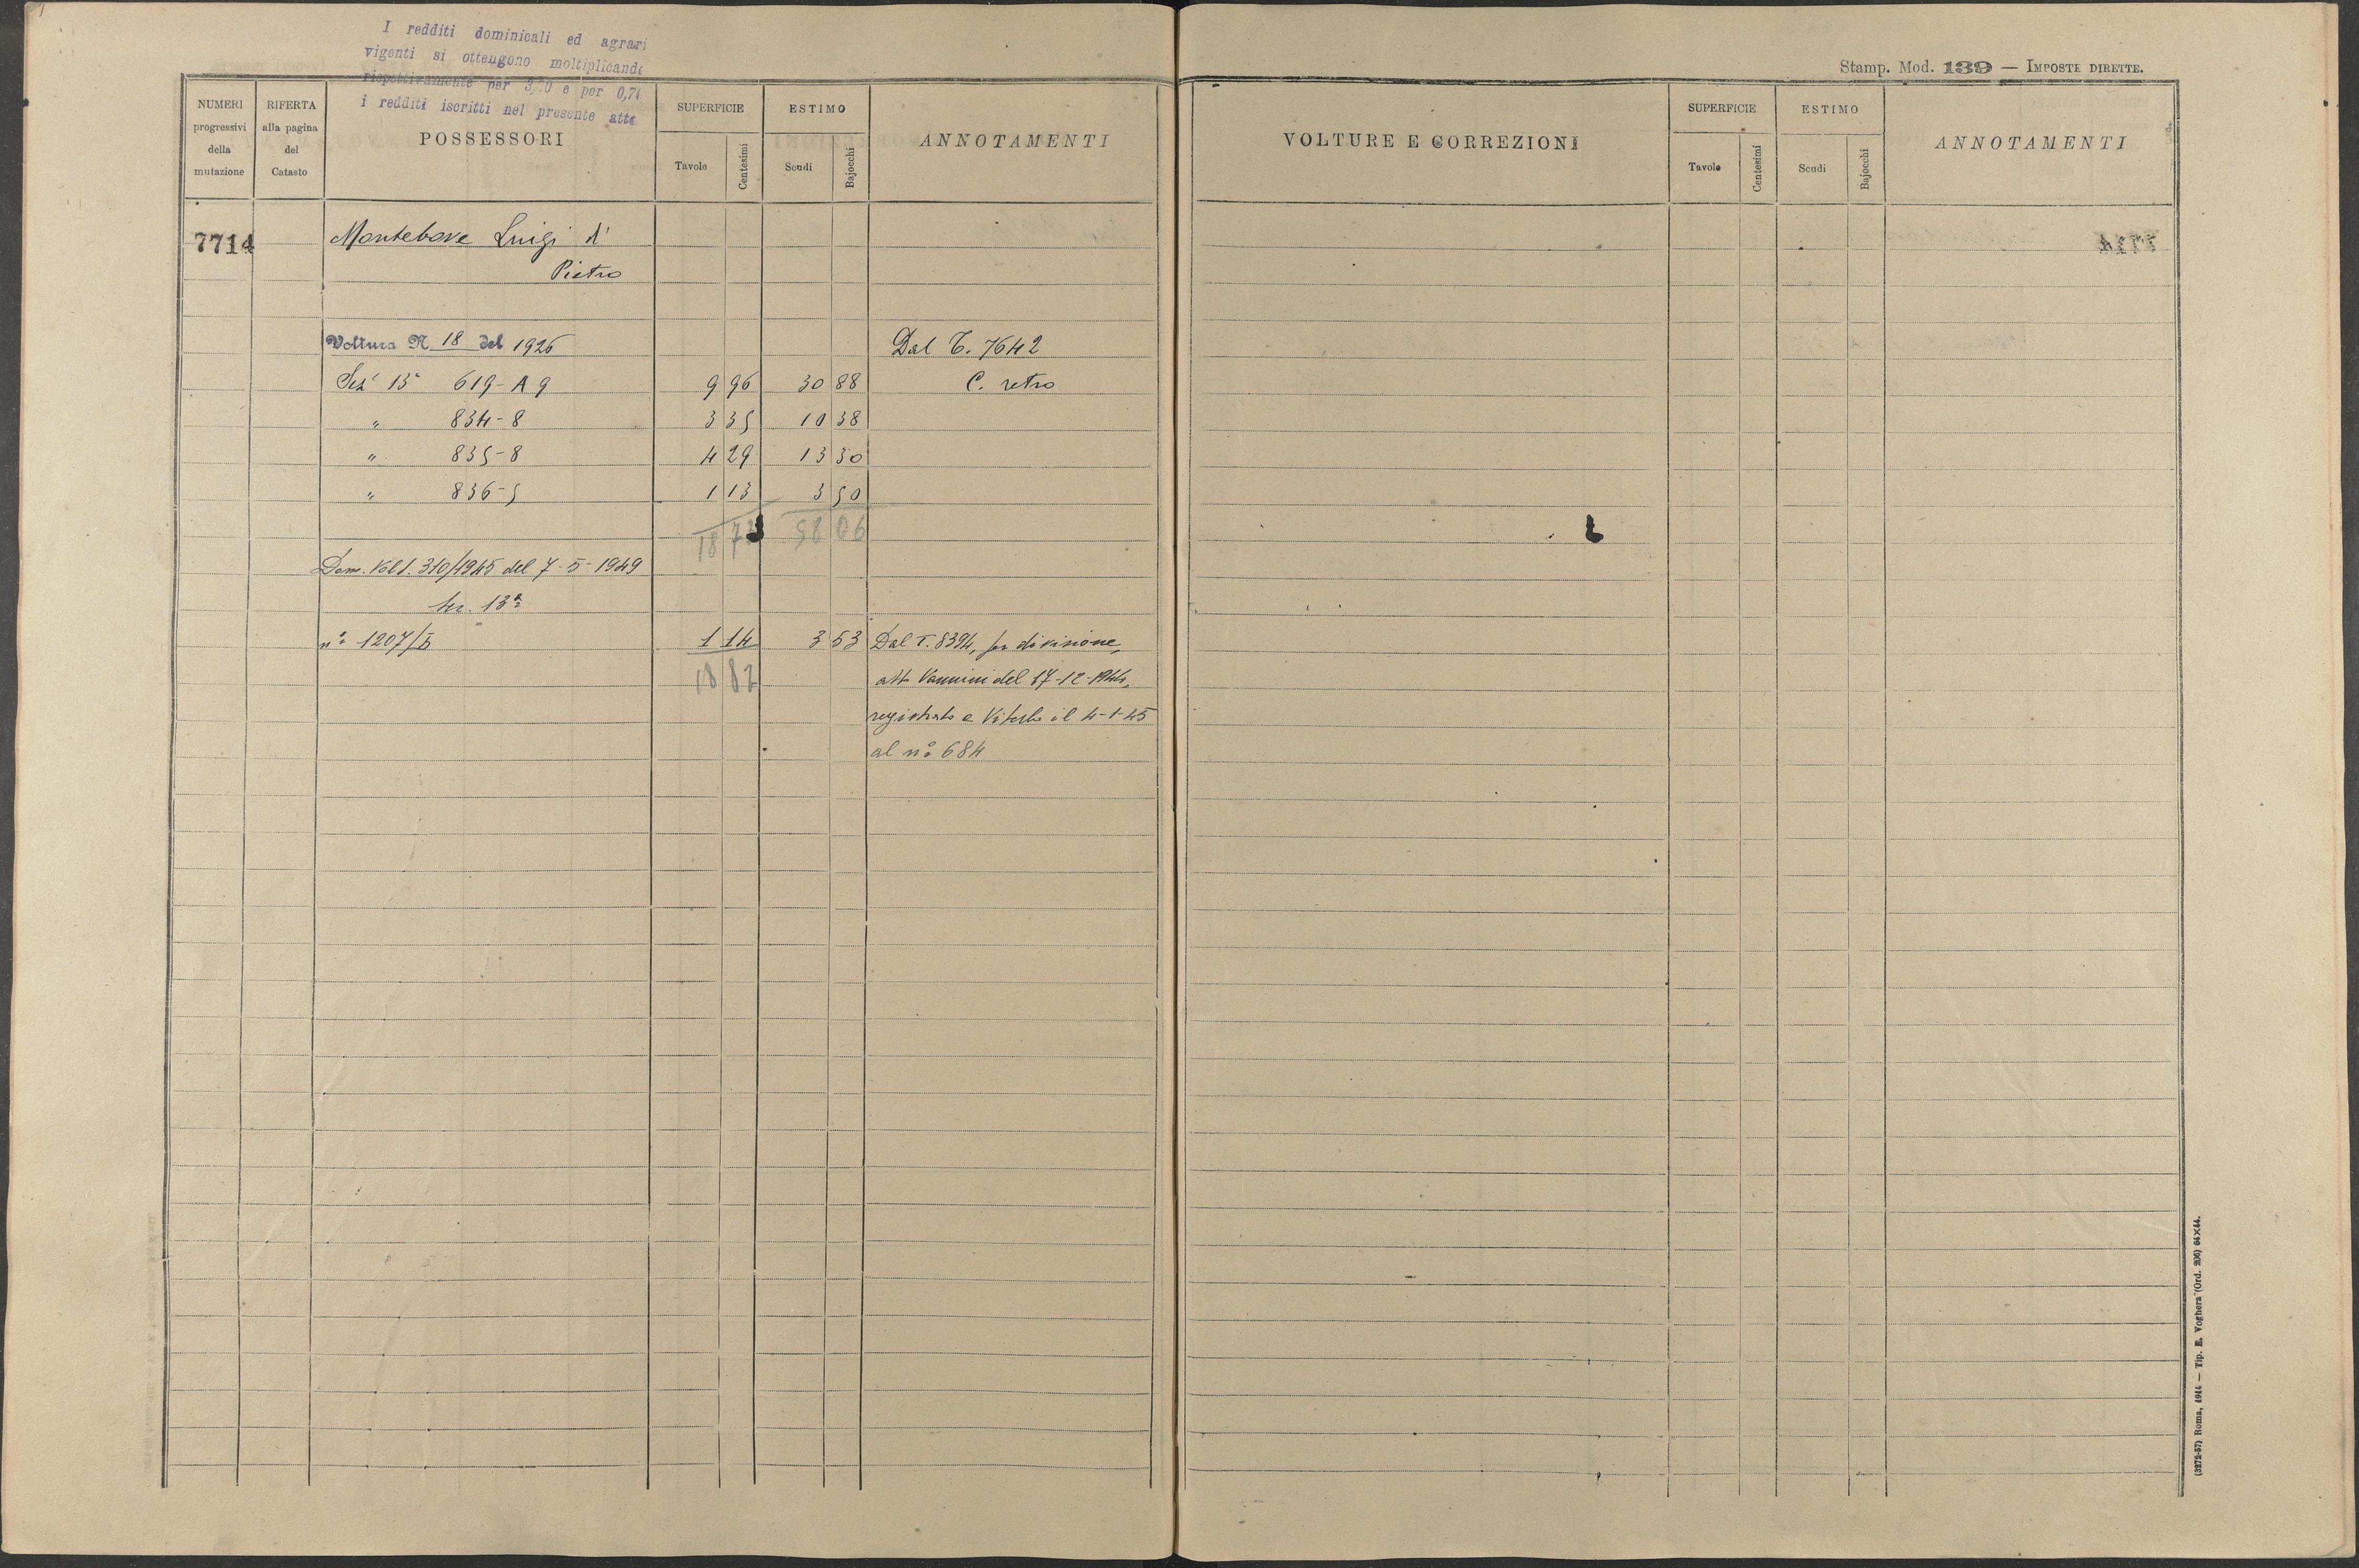 I redditi dominicali ed agrari
vigenti si ottengono moltiplicando
rispettivamente per 3,70 e per 0,74
i redditi iscritti nel presente atto
Stamp. Mod. 139 — IMPOSTE DIRETTE.
NUMERI progressivi della mutazione
RIFERTA alla pagina del Catasto
POSSESSORI
SUPERFICIE
Tavole
Centesimi
ESTIMO
Scudi
Bajocchi
ANNOTAMENTI
VOLTURE E CORREZIONI
SUPERFICIE
Tavole
Centesimi
ESTIMO
Scudi
Bajocchi
ANNOTAMENTI
7714 Montebove Luigi di
Pietro
Voltura N 18 del 1926 Dal T. 7642
Sez. 13ª 619-A 9 9 96 30 88 C. retro
" 834-8 3 35 10 38
" 835-8 4 29 13 30
" 836-5 1 13 3 50
18 73 58 06
Dom. Volt. 310/1945 del 7-5-1949
Sez. 13ª
nº 1207/b 1 14 3 53 Dal T. 8394, per divisione,
18 82 att. Vannini del 17-12-1944,
registrato a Viterbo il 4-1-45
al nº 684
(3272-57) Roma, 1914 — Tip. E. Voghera (Ord. 206) 64×44.